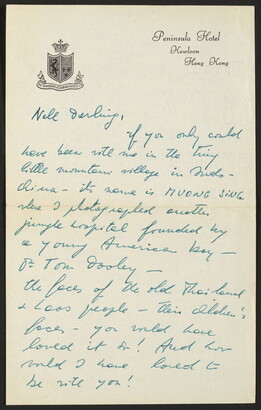 Peninsula Hotel
Kowloon
Hong Kong
Nell Darling,
If you only could
have been with me in the tiny
little mountain village in Indo-
china - it's name is MUONG SING
where I photographed another
jungle hospital founded by
a young American boy -
Dr Tom Dooley -
the faces of the old Thailand
& Laos people - their children's
faces - you would have
loved it so! And how
would I have loved to
be with you!